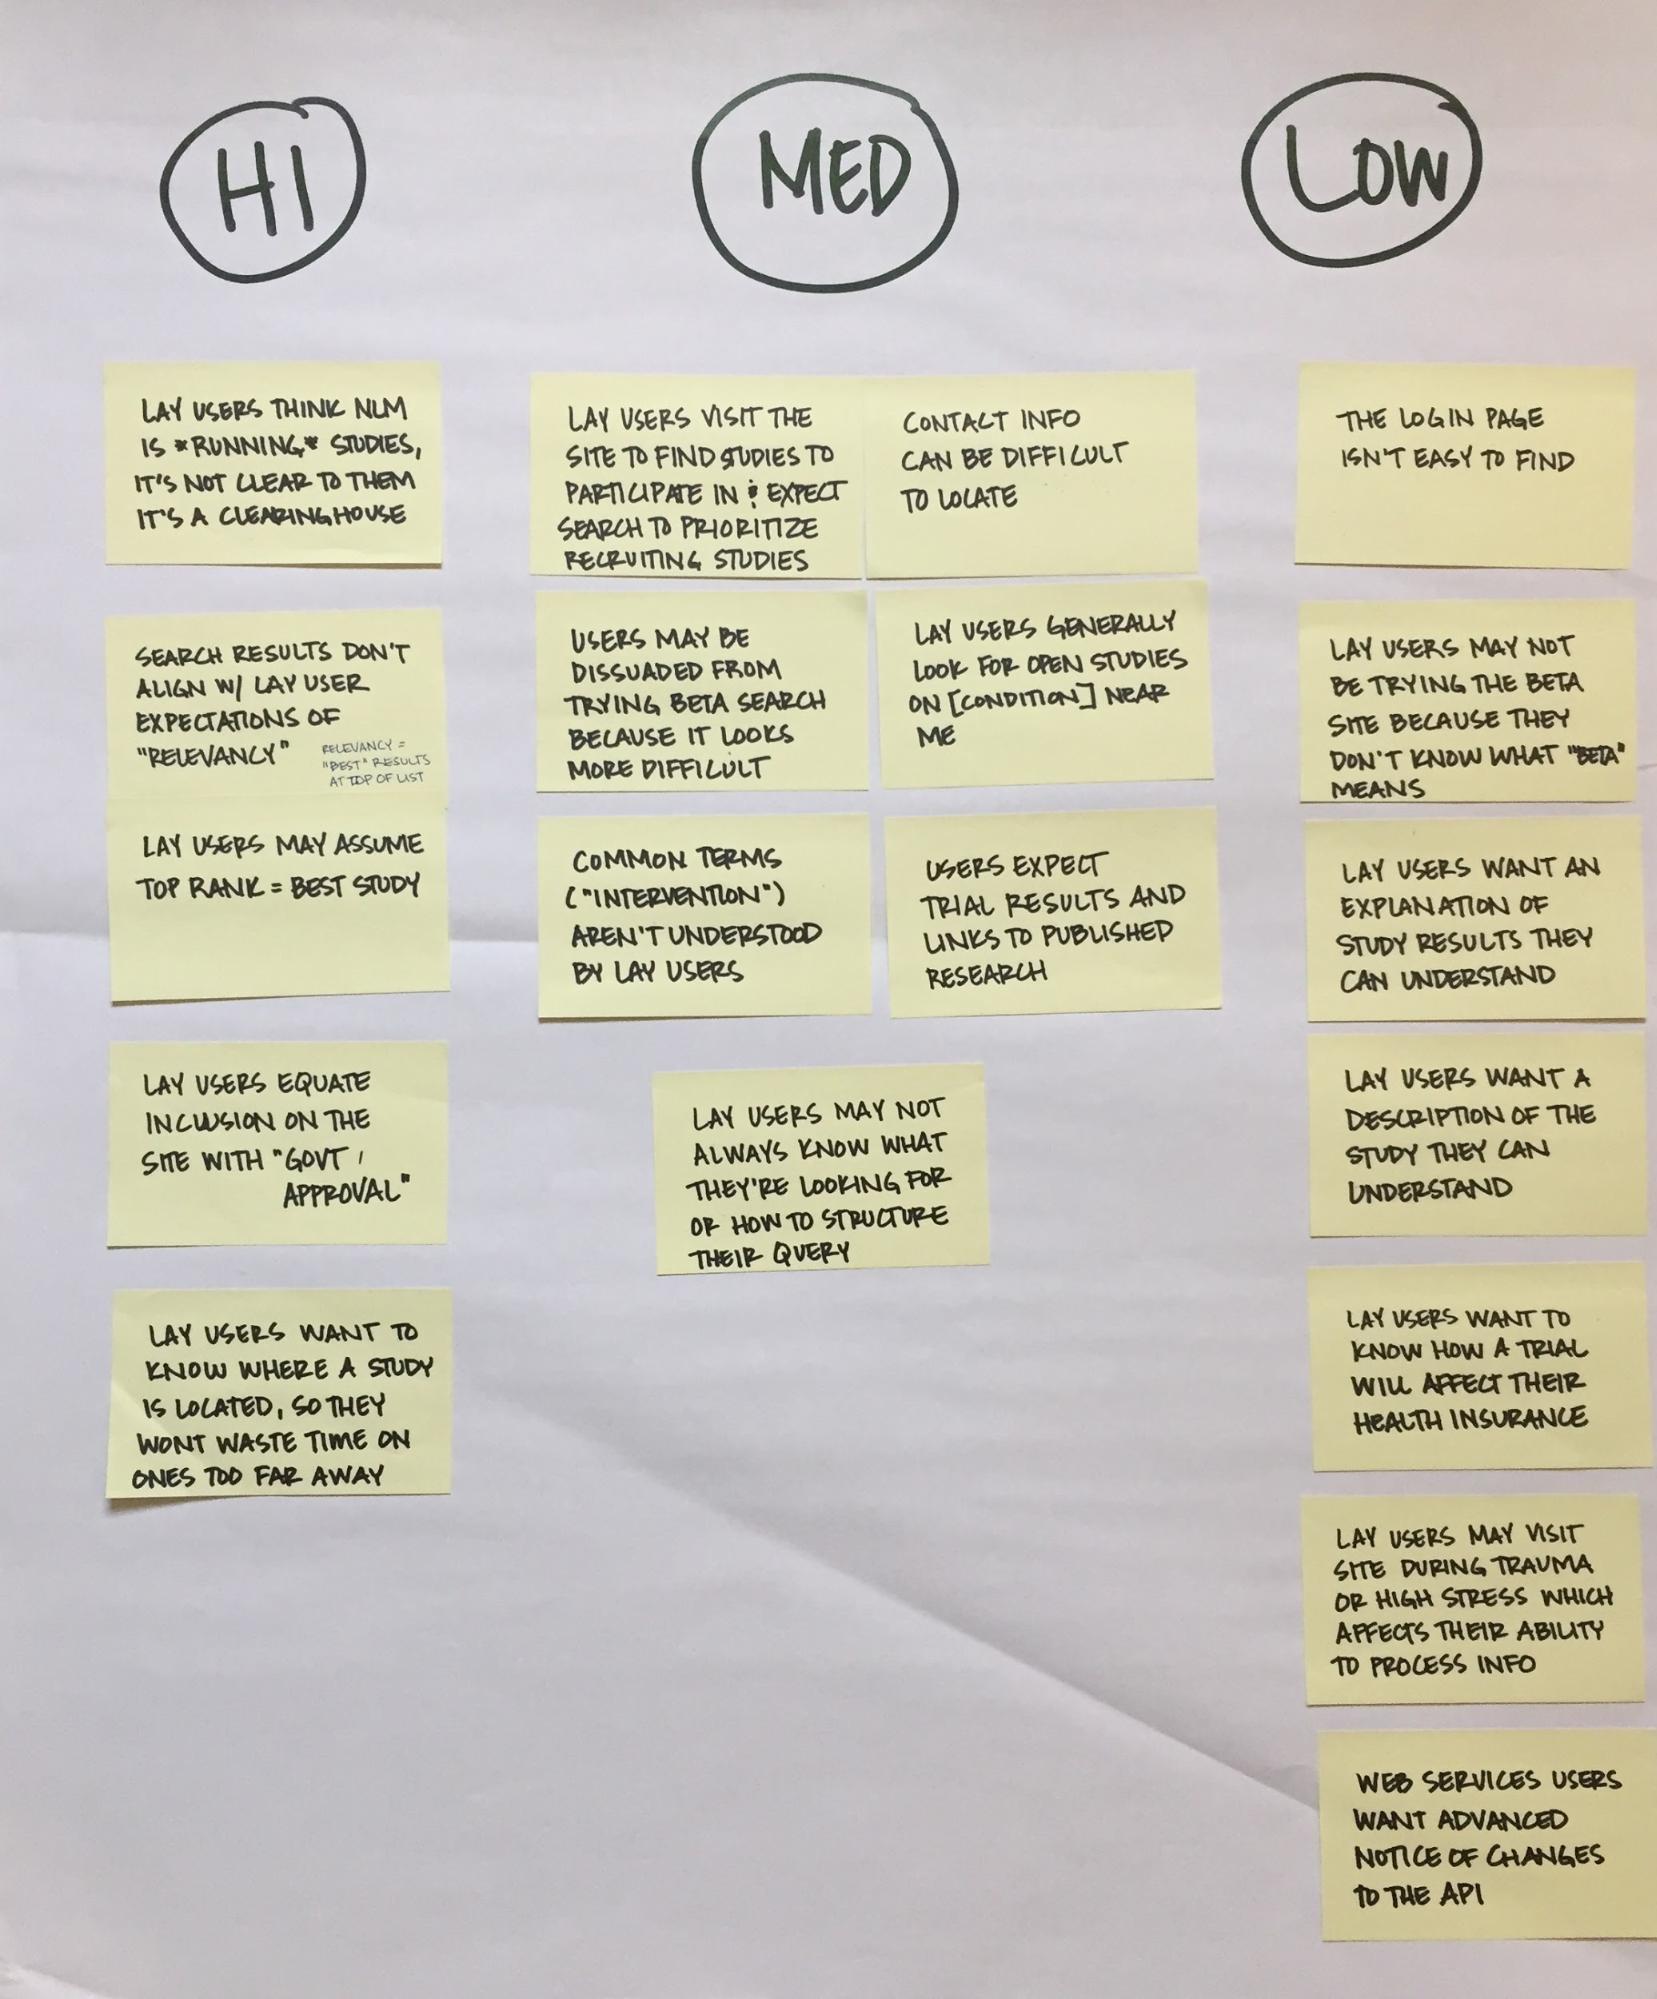 HI
MED
LOW
LAY USERS THINK NLM
IS *RUNNING* STUDIES,
IT'S NOT CLEAR TO THEM
IT'S A CLEARINGHOUSE
SEARCH RESULTS DON'T
ALIGN W/ LAY USER
EXPECTATIONS OF
"RELEVANCY"
RELEVANCY =
"BEST" RESULTS
AT TOP OF LIST
LAY USERS MAY ASSUME
TOP RANK = BEST STUDY
LAY USERS EQUATE
INCLUSION ON THE
SITE WITH "GOVT
APPROVAL"
LAY USERS WANT TO
KNOW WHERE A STUDY
IS LOCATED, SO THEY
WONT WASTE TIME ON
ONES TOO FAR AWAY
LAY USERS VISIT THE
SITE TO FIND STUDIES TO
PARTICIPATE IN & EXPECT
SEARCH TO PRIORITIZE
RECRUITING STUDIES
CONTACT INFO
CAN BE DIFFICULT
TO LOCATE
USERS MAY BE
DISSUADED FROM
TRYING BETA SEARCH
BECAUSE IT LOOKS
MORE DIFFICULT
LAY USERS GENERALLY
LOOK FOR OPEN STUDIES
ON [CONDITION] NEAR
ME
COMMON TERMS
("INTERVENTION")
AREN'T UNDERSTOOD
BY LAY USERS
USERS EXPECT
TRIAL RESULTS AND
LINKS TO PUBLISHED
RESEARCH
LAY USERS MAY NOT
ALWAYS KNOW WHAT
THEY'RE LOOKING FOR
OR HOW TO STRUCTURE
THEIR QUERY
THE LOGIN PAGE
ISN'T EASY TO FIND
LAY USERS MAY NOT
BE TRYING THE BETA
SITE BECAUSE THEY
DON'T KNOW WHAT "BETA"
MEANS
LAY USERS WANT AN
EXPLANATION OF
STUDY RESULTS THEY
CAN UNDERSTAND
LAY USERS WANT A
DESCRIPTION OF THE
STUDY THEY CAN
UNDERSTAND
LAY USERS WANT TO
KNOW HOW A TRIAL
WILL AFFECT THEIR
HEALTH INSURANCE
LAY USERS MAY VISIT
SITE DURING TRAUMA
OR HIGH STRESS WHICH
AFFECTS THEIR ABILITY
TO PROCESS INFO
WEB SERVICES USERS
WANT ADVANCED
NOTICE OF CHANGES
TO THE API